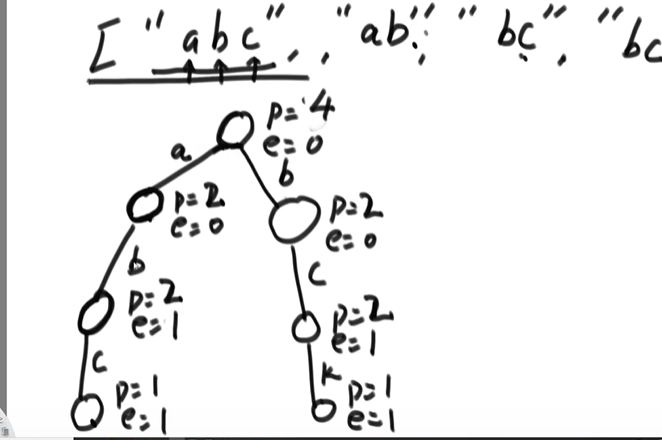 ["abc", "ab", "bc", "bc
p=4
e=0
a
b
p=2
e=0
p=2
e=0
b
c
p=2
e=1
p=2
e=1
c
k
p=1
e=1
p=1
e=1